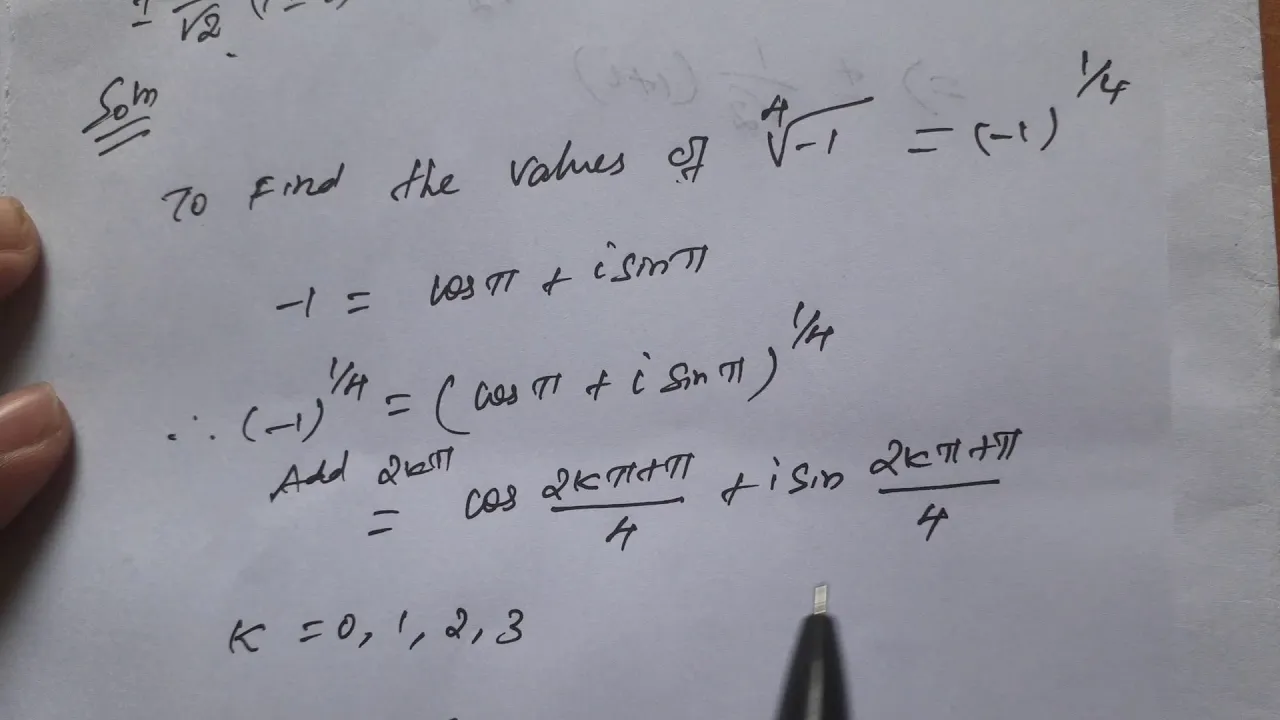 ± 1/√2 (1
Soln
To Find the values of ∜-1 = (-1)^1/4
-1 = cos π + i sin π
∴ (-1)^1/4 = (cos π + i sin π)^1/4
Add 2kπ
= cos (2kπ+π)/4 + i sin (2kπ+π)/4
K = 0, 1, 2, 3